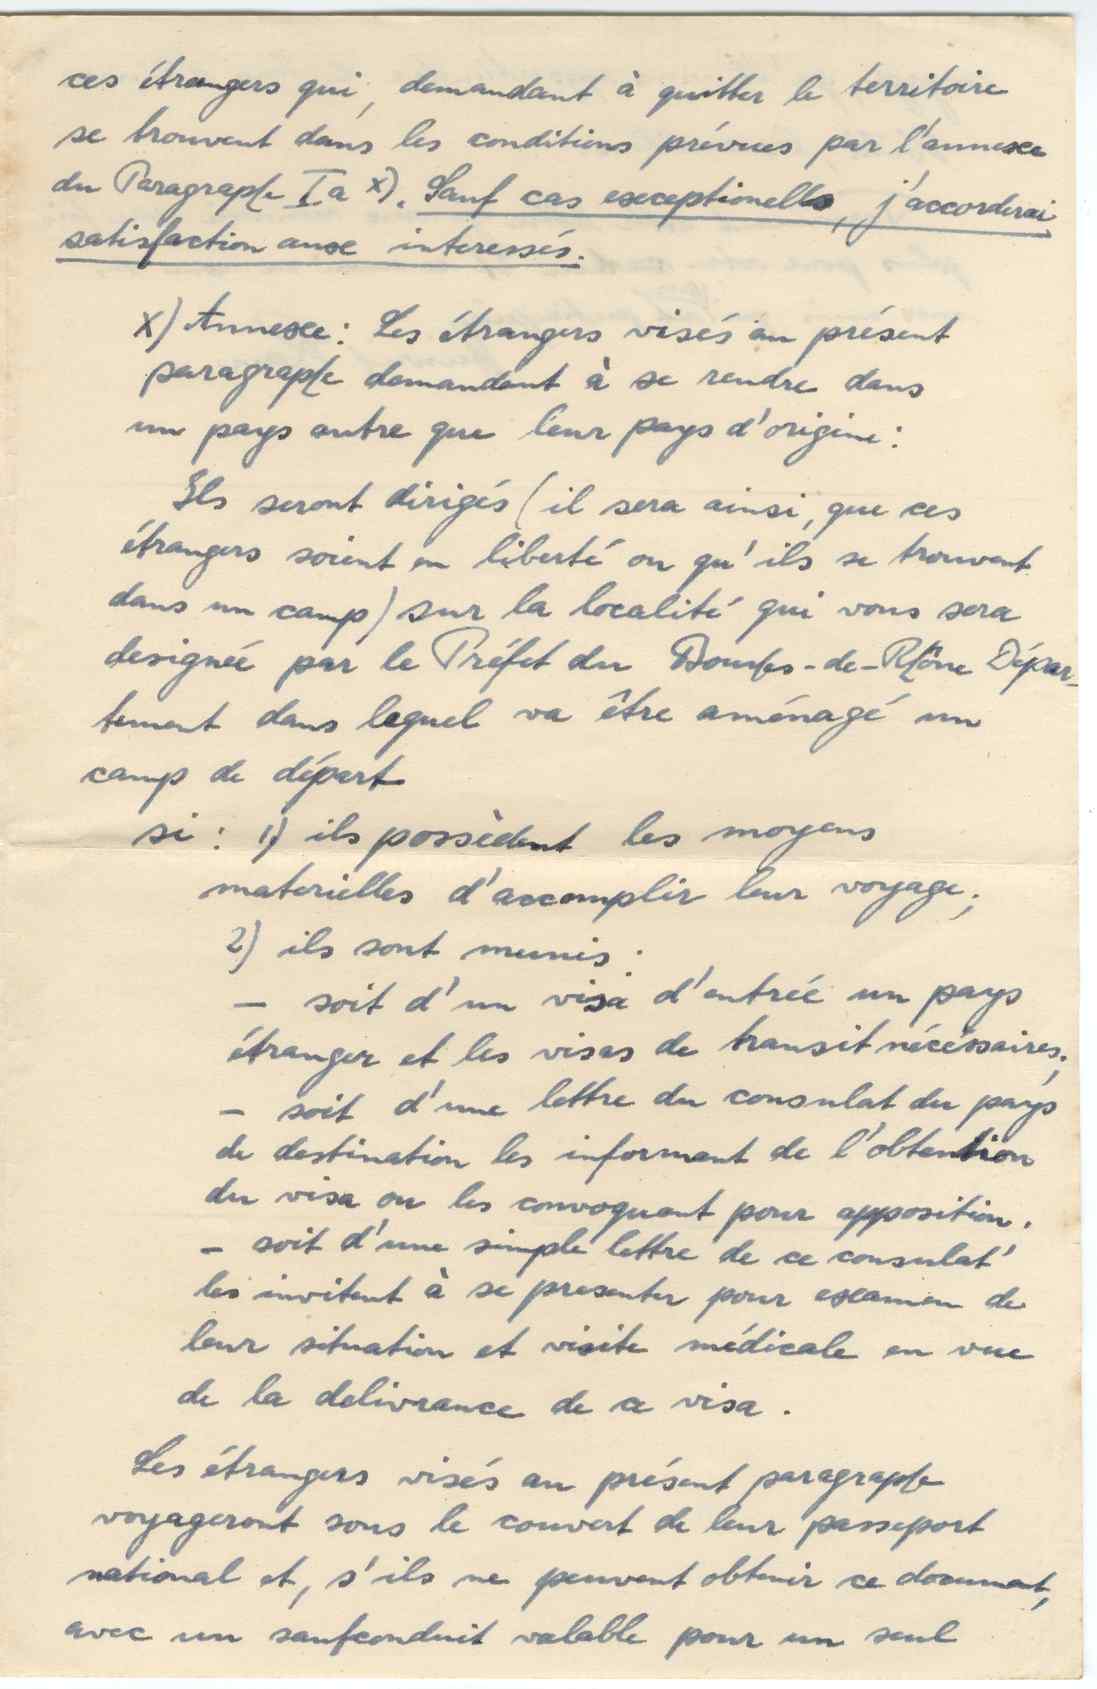 ces étrangers qui, demandant à quitter le territoire
se trouvent dans les conditions prévues par l'annexe
du Paragraphe Ia x). Sauf cas exceptionells, j'accorderai
satisfaction aux interessés.
x) Annexe: Les étrangers visés au présent
paragraphe demandent à se rendre dans
un pays autre que leur pays d'origine:
Ils seront dirigés (il sera ainsi, que ces
étrangers soient en liberté ou qu'ils se trouvent
dans un camp) sur la localité qui vous sera
designée par le Préfet du Bouches-de-Rhône Dépar-
tement dans lequel va être aménagé un
camp de départ
si: 1) ils possèdent les moyens
materielles d'accomplir leur voyage;
2) ils sont munis:
- soit d'un visa d'entrée un pays
étranger et les visas de transit nécéssaires;
- soit d'une lettre du consulat du pays
de destination les informant de l'obtention
du visa ou les convoquant pour apposition.
- soit d'une simple lettre de ce consulat
les invitent à se presenter pour examen de
leur situation et visite médicale en vue
de la delivrance de ce visa.
Les étrangers visés au présent paragraphe
voyageront sous le couvert de leur passeport
national et, s'ils ne peuvent obtenir ce document,
avec un saufconduit valable pour un seul